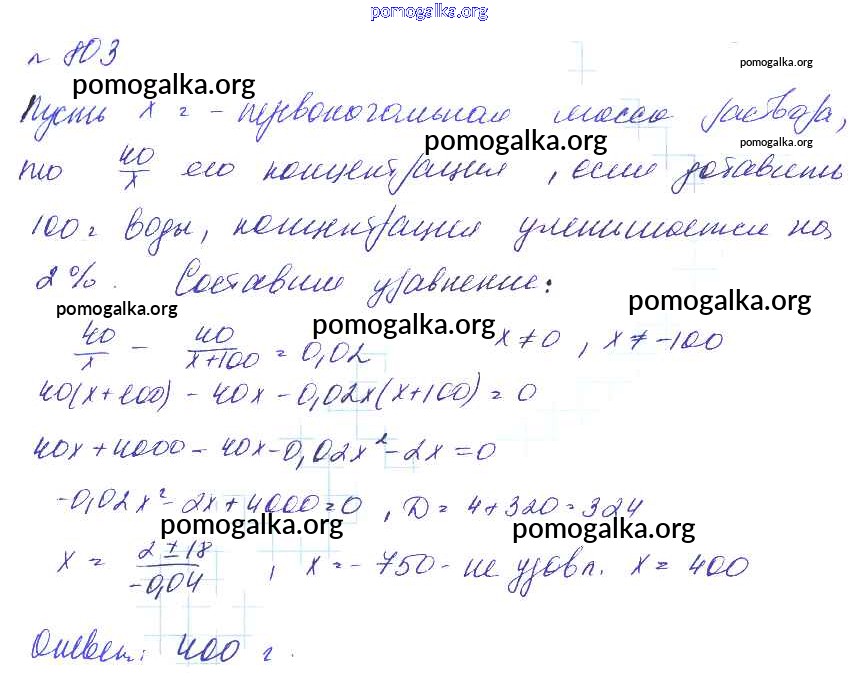 pomogalka.org
№ 803
pomogalka.org
pomogalka.org
Пусть x г - первоначальная масса раствора,
pomogalka.org
pomogalka.org
то 40/x его концентрация, если добавить
100 г воды, концентрация уменьшается на
2%. Составим уравнение:
pomogalka.org
pomogalka.org
pomogalka.org
40/x - 40/(x+100) = 0,02 x ≠ 0, x ≠ -100
40(x+100) - 40x - 0,02x(x+100) = 0
40x + 4000 - 40x - 0,02x² - 2x = 0
-0,02x² - 2x + 4000 = 0, D = 4 + 320 = 324
pomogalka.org
pomogalka.org
x = (2 ± 18)/(-0,04), x = - 750 - не удовл. x = 400
Ответ: 400 г.